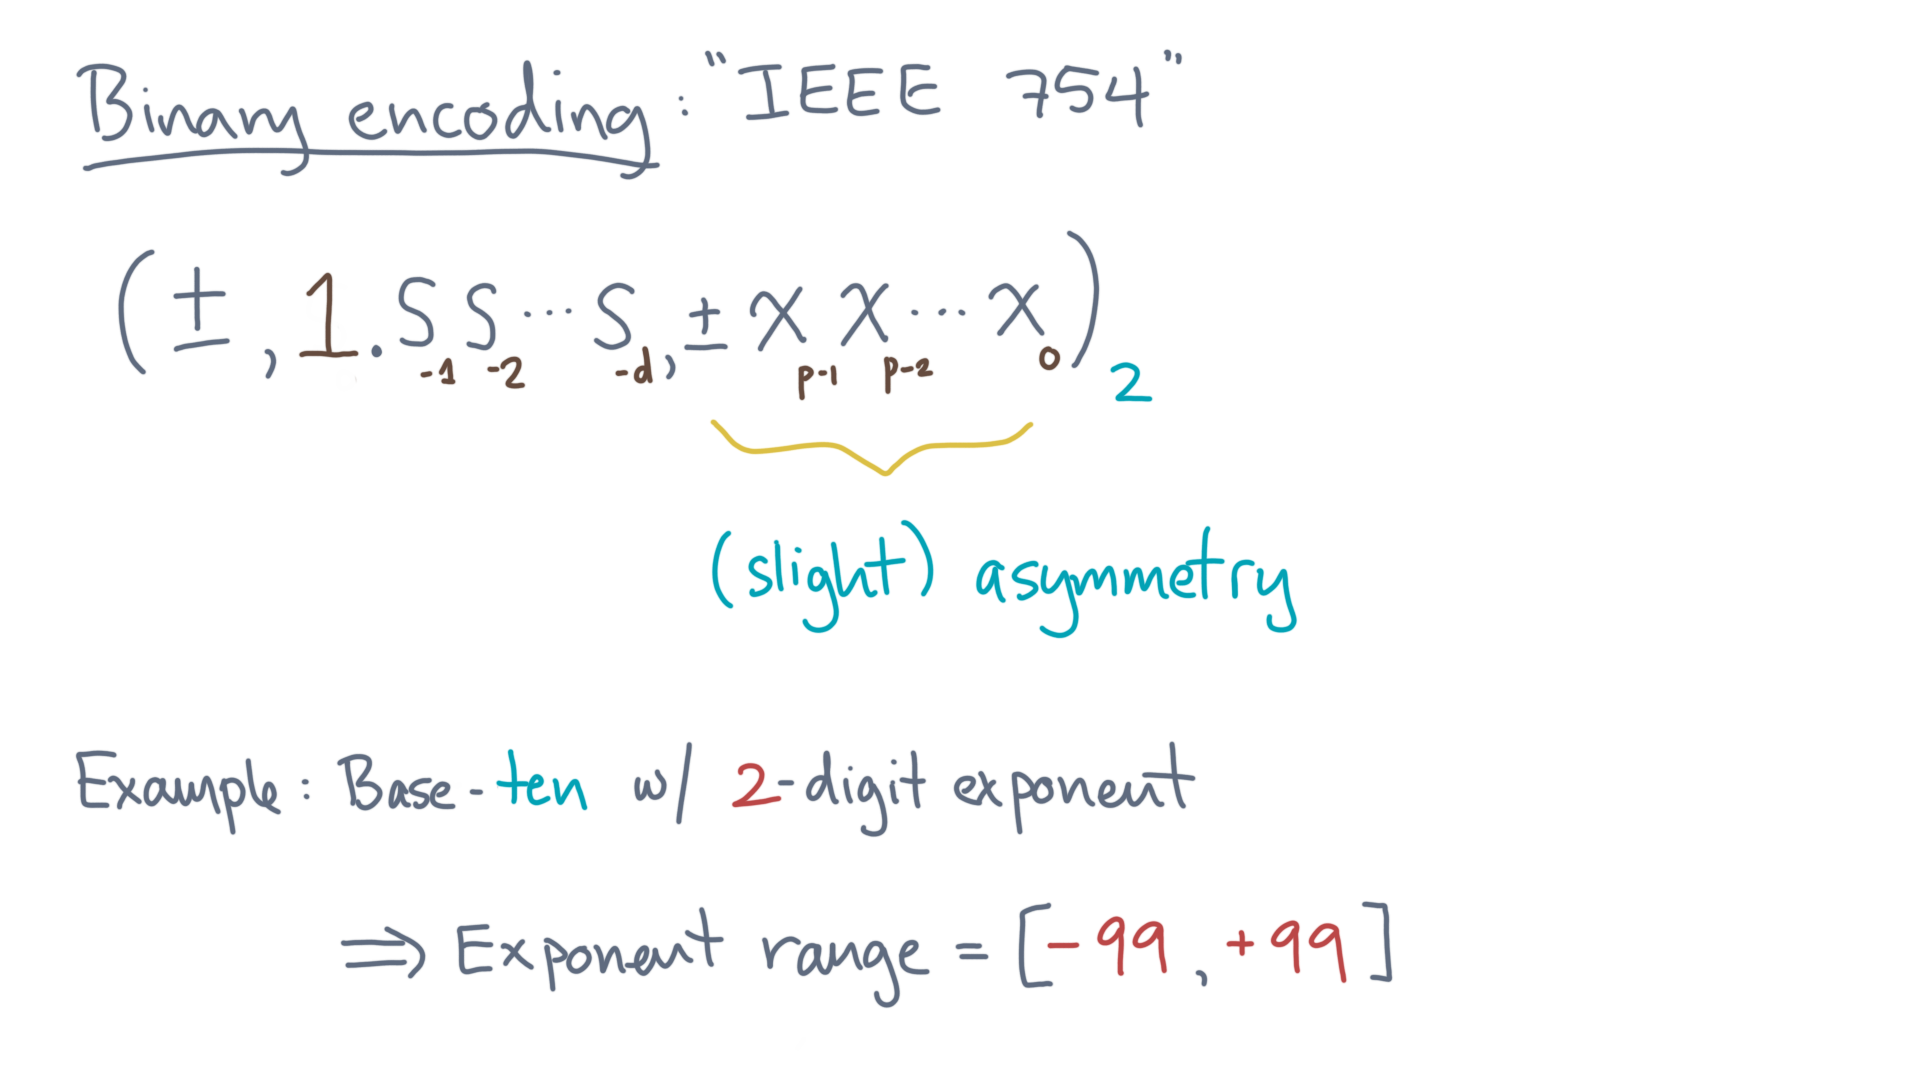 Binary encoding: "IEEE 754"
(±, 1.SS···S, ±XX···X)₂
-1 -2 -d p-1 p-2 0
(slight) asymmetry
Example: Base-ten w/ 2-digit exponent
⇒ Exponent range = [-99, +99]